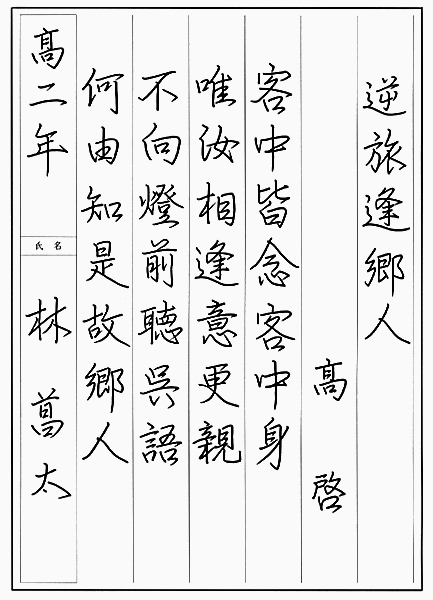 逆旅逢鄉人
高 啓
客中皆念客中身
唯汝相逢意更親
不向燈前聽呉語
何由知是故鄉人
高二年
氏名
林 菖太